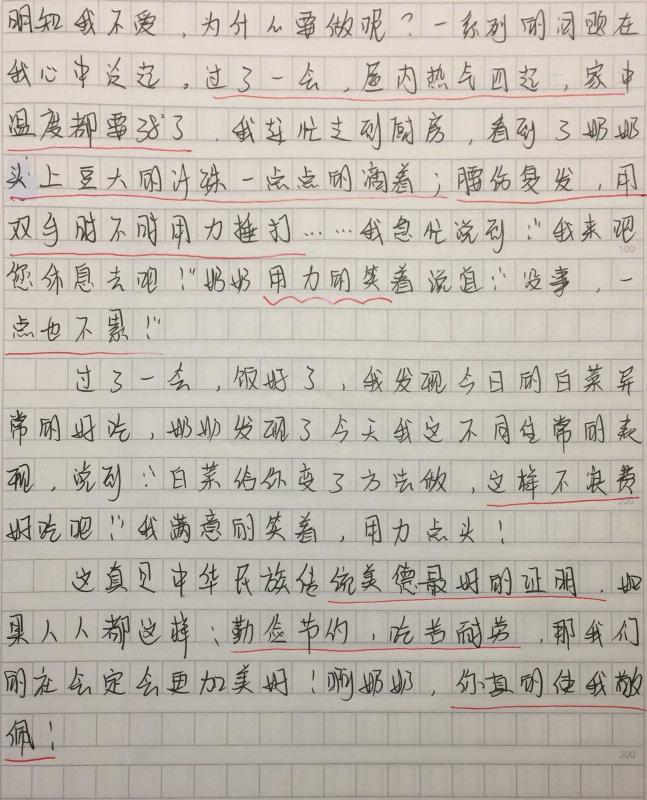 明知我不爱，为什么要做呢？一系列的问题在
我心中泛起。过了一会，屋内热气四起，家中
温度都要38°了，我赶忙走到厨房，看到了奶奶
头上豆大的汗珠一点点的滴着；腰伤复发，用
双手时不时用力捶打……我急忙说到：“我来吧
您休息去吧！”奶奶用力的笑着说道：“没事，一
点也不累！”
过了一会，饭好了，我发现今日的白菜异
常的好吃，奶奶发现了今天我这不同往常的表
现，说到：“白菜给你变了方法做，这样不浪费
好吃吧！”我满意的笑着，用力点头！
这真是中华民族传统美德最好的证明，如
果人人都这样：勤俭节约，吃苦耐劳，那我们
的社会定会更加美好！啊奶奶，你真的使我敬
佩！
100
200
300